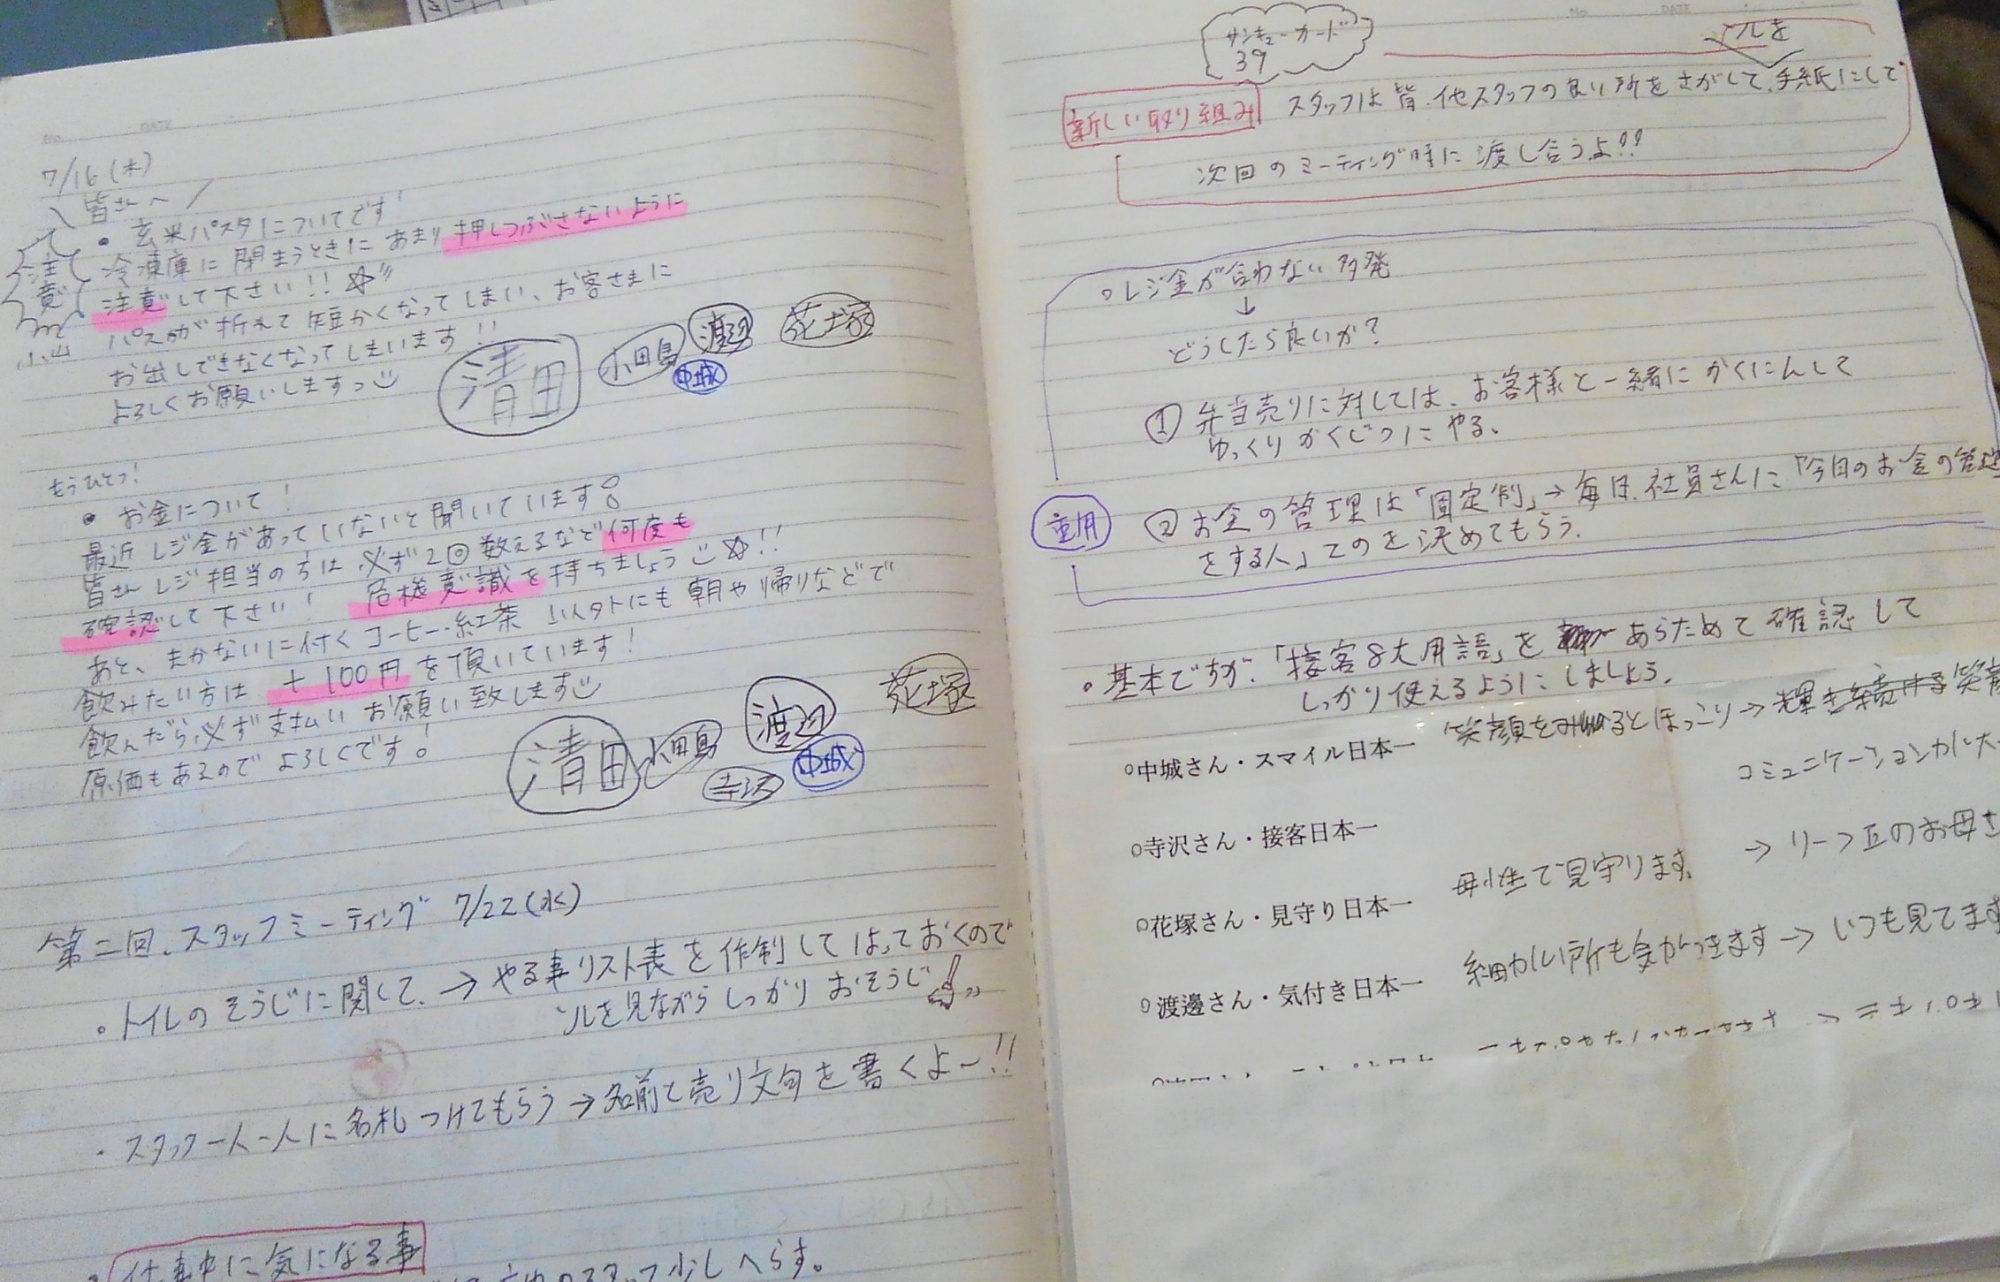 7/16(木)
皆さんへ
注意
小山
• 玄米パスタについてです!
冷凍庫に閉まうときに あまり 押しつぶさないように
注意して下さい!!☆
パスタが折れて短かくなってしまい、お客さまに
お出しできなくなってしまいます!!
よろしくお願いします
清田 小田島 渡辺 中城 花塚
もうひとつ!
• お金について!
最近 レジ金があっていないと聞いています
皆さん レジ担当の方は 必ず2回数えるなど何度も
確認して下さい! 危機意識を持ちましょう☆!!
あと、まかないに付く コーヒー・紅茶 以外にも 朝や帰りなどで
飲みたい方は +100円を頂いています!
飲んだら必ず支払い お願い致します
原価もあるので よろしくです!
清田 小田島 渡辺 花塚
寺沢 中城
第二回、スタッフミーティング 7/22(水)
。トイレのそうじに関して。→ やる事リスト表を作制してはっておくので
ソレを見ながらしっかり おそうじ
・スタッフ一人一人に名札つけてもらう→名前と売り文句を書くよー!!
仕事中に気になる事
スタッフ少しへらす。
サンキューカード
39
ソレを
新しい取り組み スタッフは皆、他スタッフの良い所をさがして、手紙にして
次回のミーティング時に渡し合うよ!!
○レジ金が合わない多発
↓
どうしたら良いか?
① 弁当売りに対しては、お客様と一緒にかくにんして
ゆっくりかくじつにやる、
重用 ② お金の管理は「固定制」→ 毎日、社員さんに「今日のお金の管理
をする人」てのを決めてもらう。
。基本ですが、「接客8大用語」をあらためて確認して
しっかり使えるようにしましょう。
○中城さん・スマイル日本一 笑顔をみるとほっこり→輝き続ける笑顔
コミュニケーションが大
○寺沢さん・接客日本一
○花塚さん・見守り日本一 母性で見守ります。 → リーフ丘のお母さ
○渡邊さん・気付き日本一 細かい所も気がつきます → いつも見てます